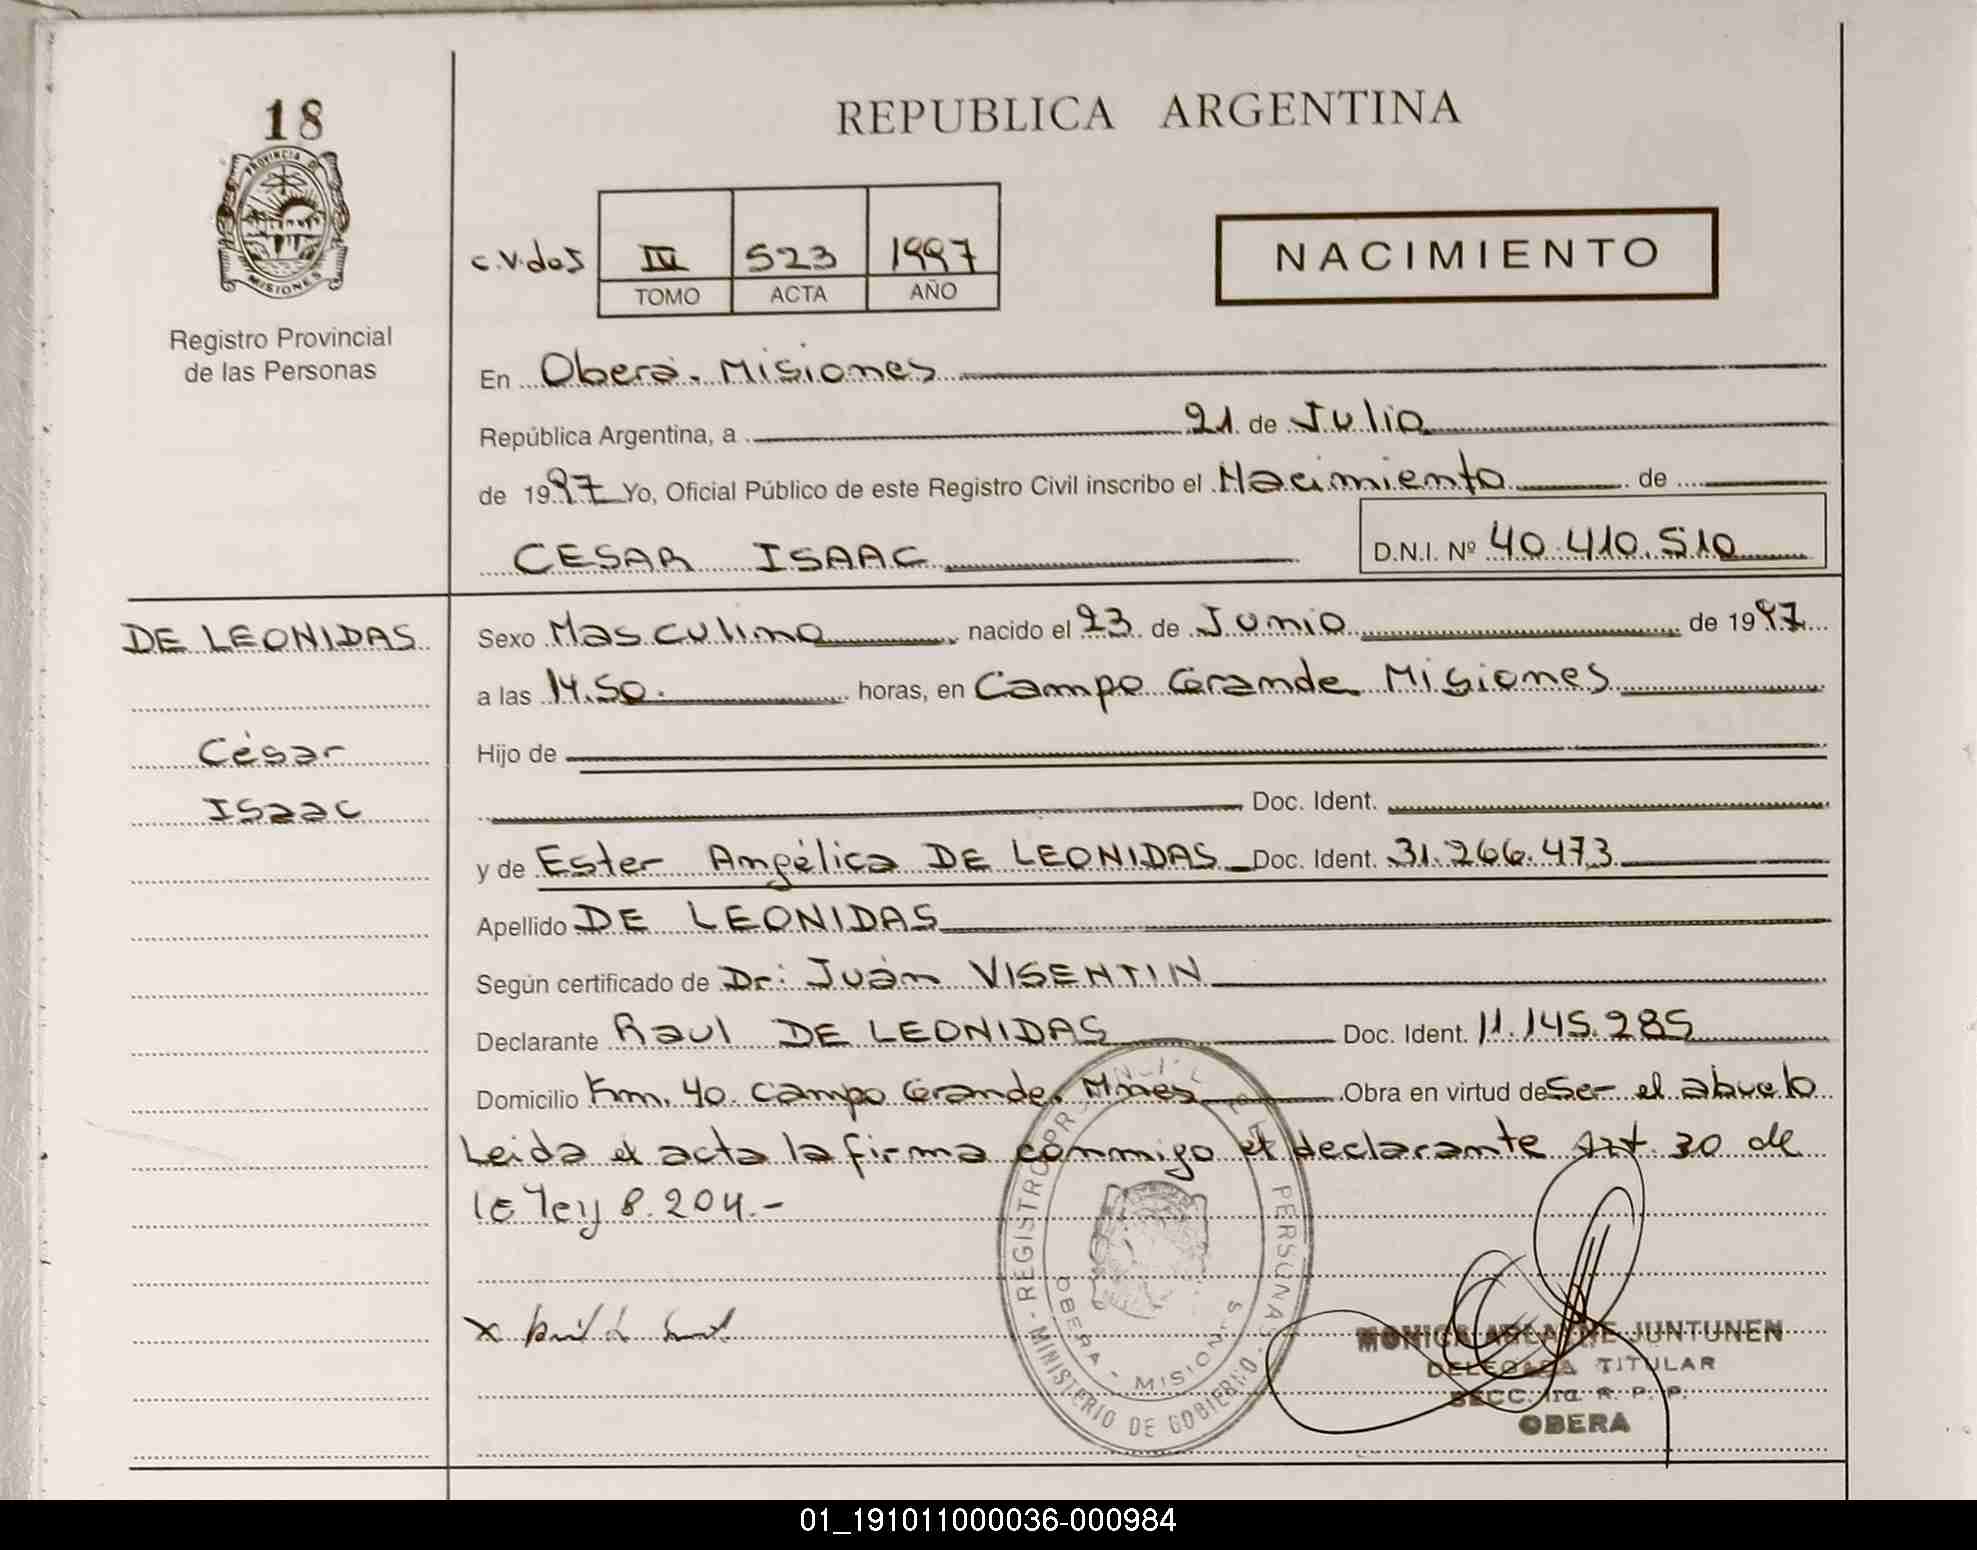 18
PROVINCIA D
MISIONES
Registro Provincial
de las Personas
REPUBLICA ARGENTINA
c.V.dos III 523 1997
TOMO ACTA AÑO
NACIMIENTO
En Oberá. Misiones
República Argentina, a 21 de Julio
de 1997 Yo, Oficial Público de este Registro Civil inscribo el Nacimiento de
CESAR ISAAC D.N.I. Nº 40.410.510
DE LEONIDAS
César
Isaac
Sexo Masculino, nacido el 23 de Junio de 1997
a las 14.50. horas, en Campo Grande Misiones
Hijo de
Doc. Ident.
y de Ester Angélica DE LEONIDAS Doc. Ident. 31.266.473
Apellido DE LEONIDAS
Según certificado de Dr: Juán VISENTIN
Declarante Raul DE LEONIDAS Doc. Ident. 11.145.285
Domicilio Km. 40. Campo Grande. Mnes Obra en virtud de Ser el abuelo
Leida el acta la firma conmigo el declarante Art. 30 de
le ley 8.204.-
X
REGISTRO PROVINCIAL DE LAS PERSONAS - MINISTERIO DE GOBIERNO -
OBERA - MISIONES
MONICA JUNTUNEN
DELEGADA TITULAR
SECC. 1ra. R. P. P.
OBERA
01_191011000036-000984